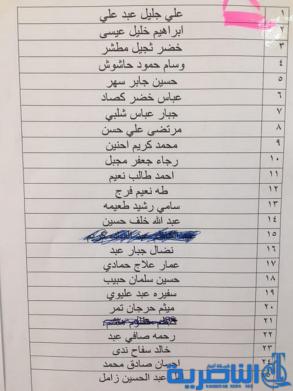 ١ علي جليل عبد علي
٢ ابراهيم خليل عيسى
٣ خضر ثجيل مطشر
٤ وسام حمود حاشوش
٥ حسين جابر سهر
٦ عباس خضر كصاد
٧ جبار عباس شلبي
٨ مرتضى علي حسن
٩ محمد كريم احنين
١٠ رجاء جعفر مجبل
١١ احمد طالب نعيم
١٢ طه نعيم فرج
١٣ سامي رشيد طعيمه
١٤ عبد الله خلف حسين
١٥
١٦ نضال جبار عبد
١٧ عمار علاج حمادي
١٨ حسين سلمان حبيب
١٩ سفيره عبد عليوي
٢٠ ميثم حرجان تمر
٢١
٢٢ رحمه صافي عبد
٢٣ خالد سفاح ندى
٢٤ احسان صادق محمد
عبد الحسين زامل
الناصرية